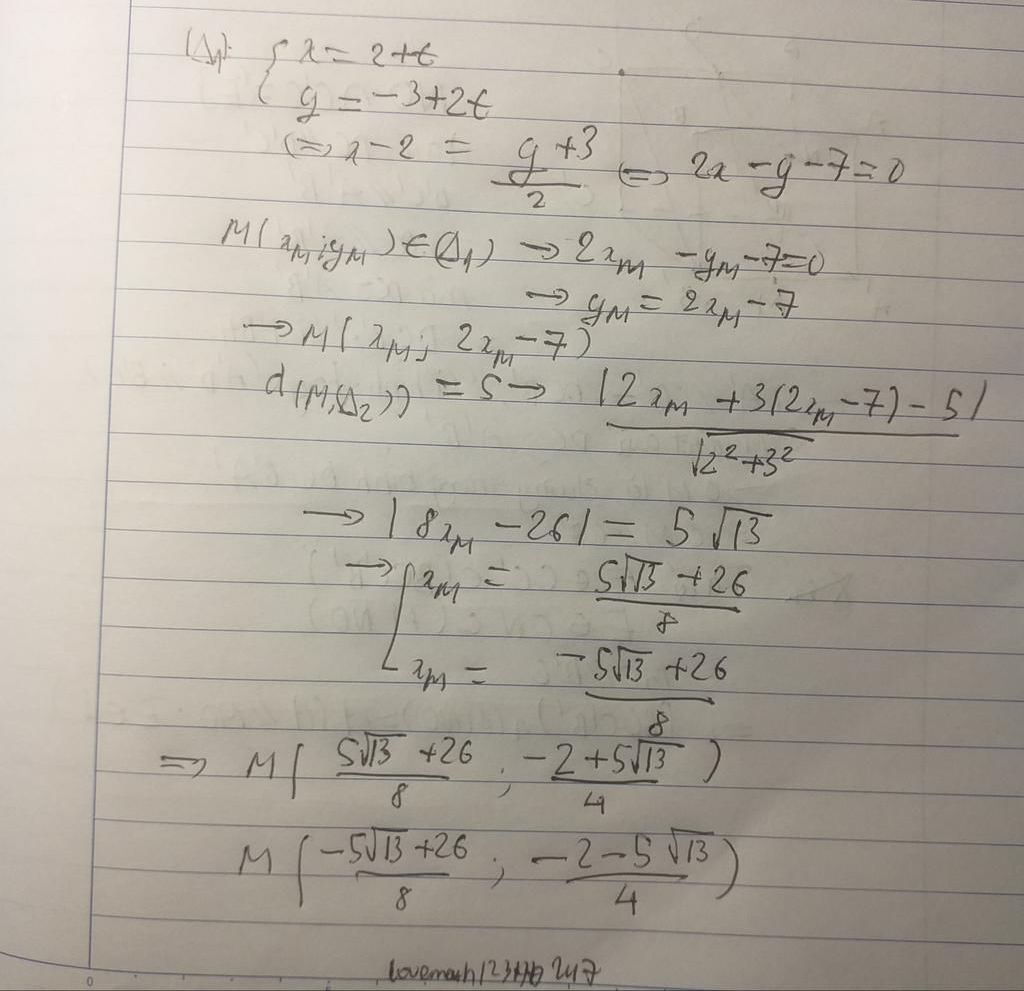 (Δ₁): { x = 2+t
{ y = -3+2t
(=) x-2 = (y+3)/2 (=) 2x - y - 7 = 0
M(x_M; y_M) ∈ (Δ₁) → 2x_M - y_M - 7 = 0
→ y_M = 2x_M - 7
→ M(x_M; 2x_M - 7)
d(M,(Δ₂)) = 5 → |2x_M + 3(2x_M - 7) - 5| / √(2²+3²)
→ |8x_M - 26| = 5√13
→ [ x_M = (5√13 + 26)/8
[ x_M = (-5√13 + 26)/8
=> M((5√13 + 26)/8 ; (-2 + 5√13)/4)
M((-5√13 + 26)/8 ; (-2 - 5√13)/4)
0